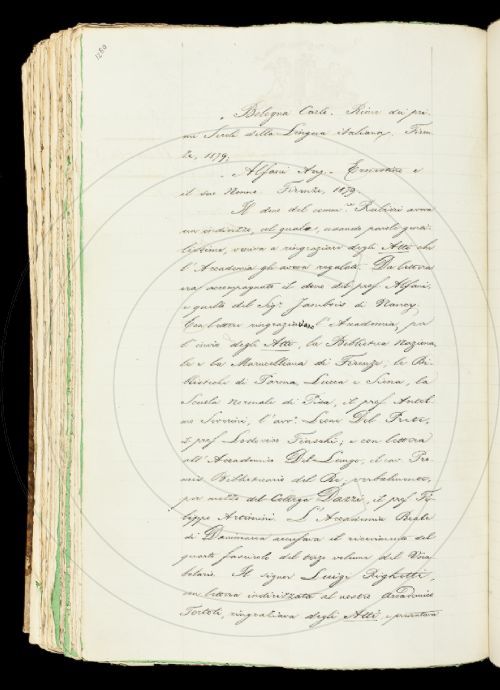 1280
" Bologna Carlo. Rime dei pri-
mi Secoli della Lingua italiana. Firen-
ze, 1879;
" Alfani Aug. Ernestino e
il suo Nonno. Firenze, 1879.
Il dono del comm.re Rubieri aveva
un indirizzo, col quale, usando parole genti-
lissime, veniva a ringraziare degli Atti che
l'Accademia gli aveva regalati. Da lettera
era accompagnato il dono del prof. Alfani,
e quello del Sig.r Jacobois di Nancy.
Con lettere ringraziavano l'Accademia, per
l'invio degli Atti, la Biblioteca Naziona-
le e la Marucelliana di Firenze; le Bi-
blioteche di Parma, Lucca e Siena, la
Scuola Normale di Pisa, il prof. Antel-
mo Severini, l'avv. Leone Del Prete,
il prof. Lodovico Fiaschi; e con lettera
all'Accademico Del-Lungo, il cav. Pro-
mis Bibliotecario del Re; verbalmente,
per mezzo del Collega Dazzi, il prof. Fi-
lippo Artimini. L'Accademia Reale
di Danimarca accusava il ricevimento del
quarto fascicolo del terzo volume del Voca-
bolario. Il signor Luigi Righetti,
con lettera indirizzata al nostro Accademico
Tortoli, ringraziava degli Atti, e presentava